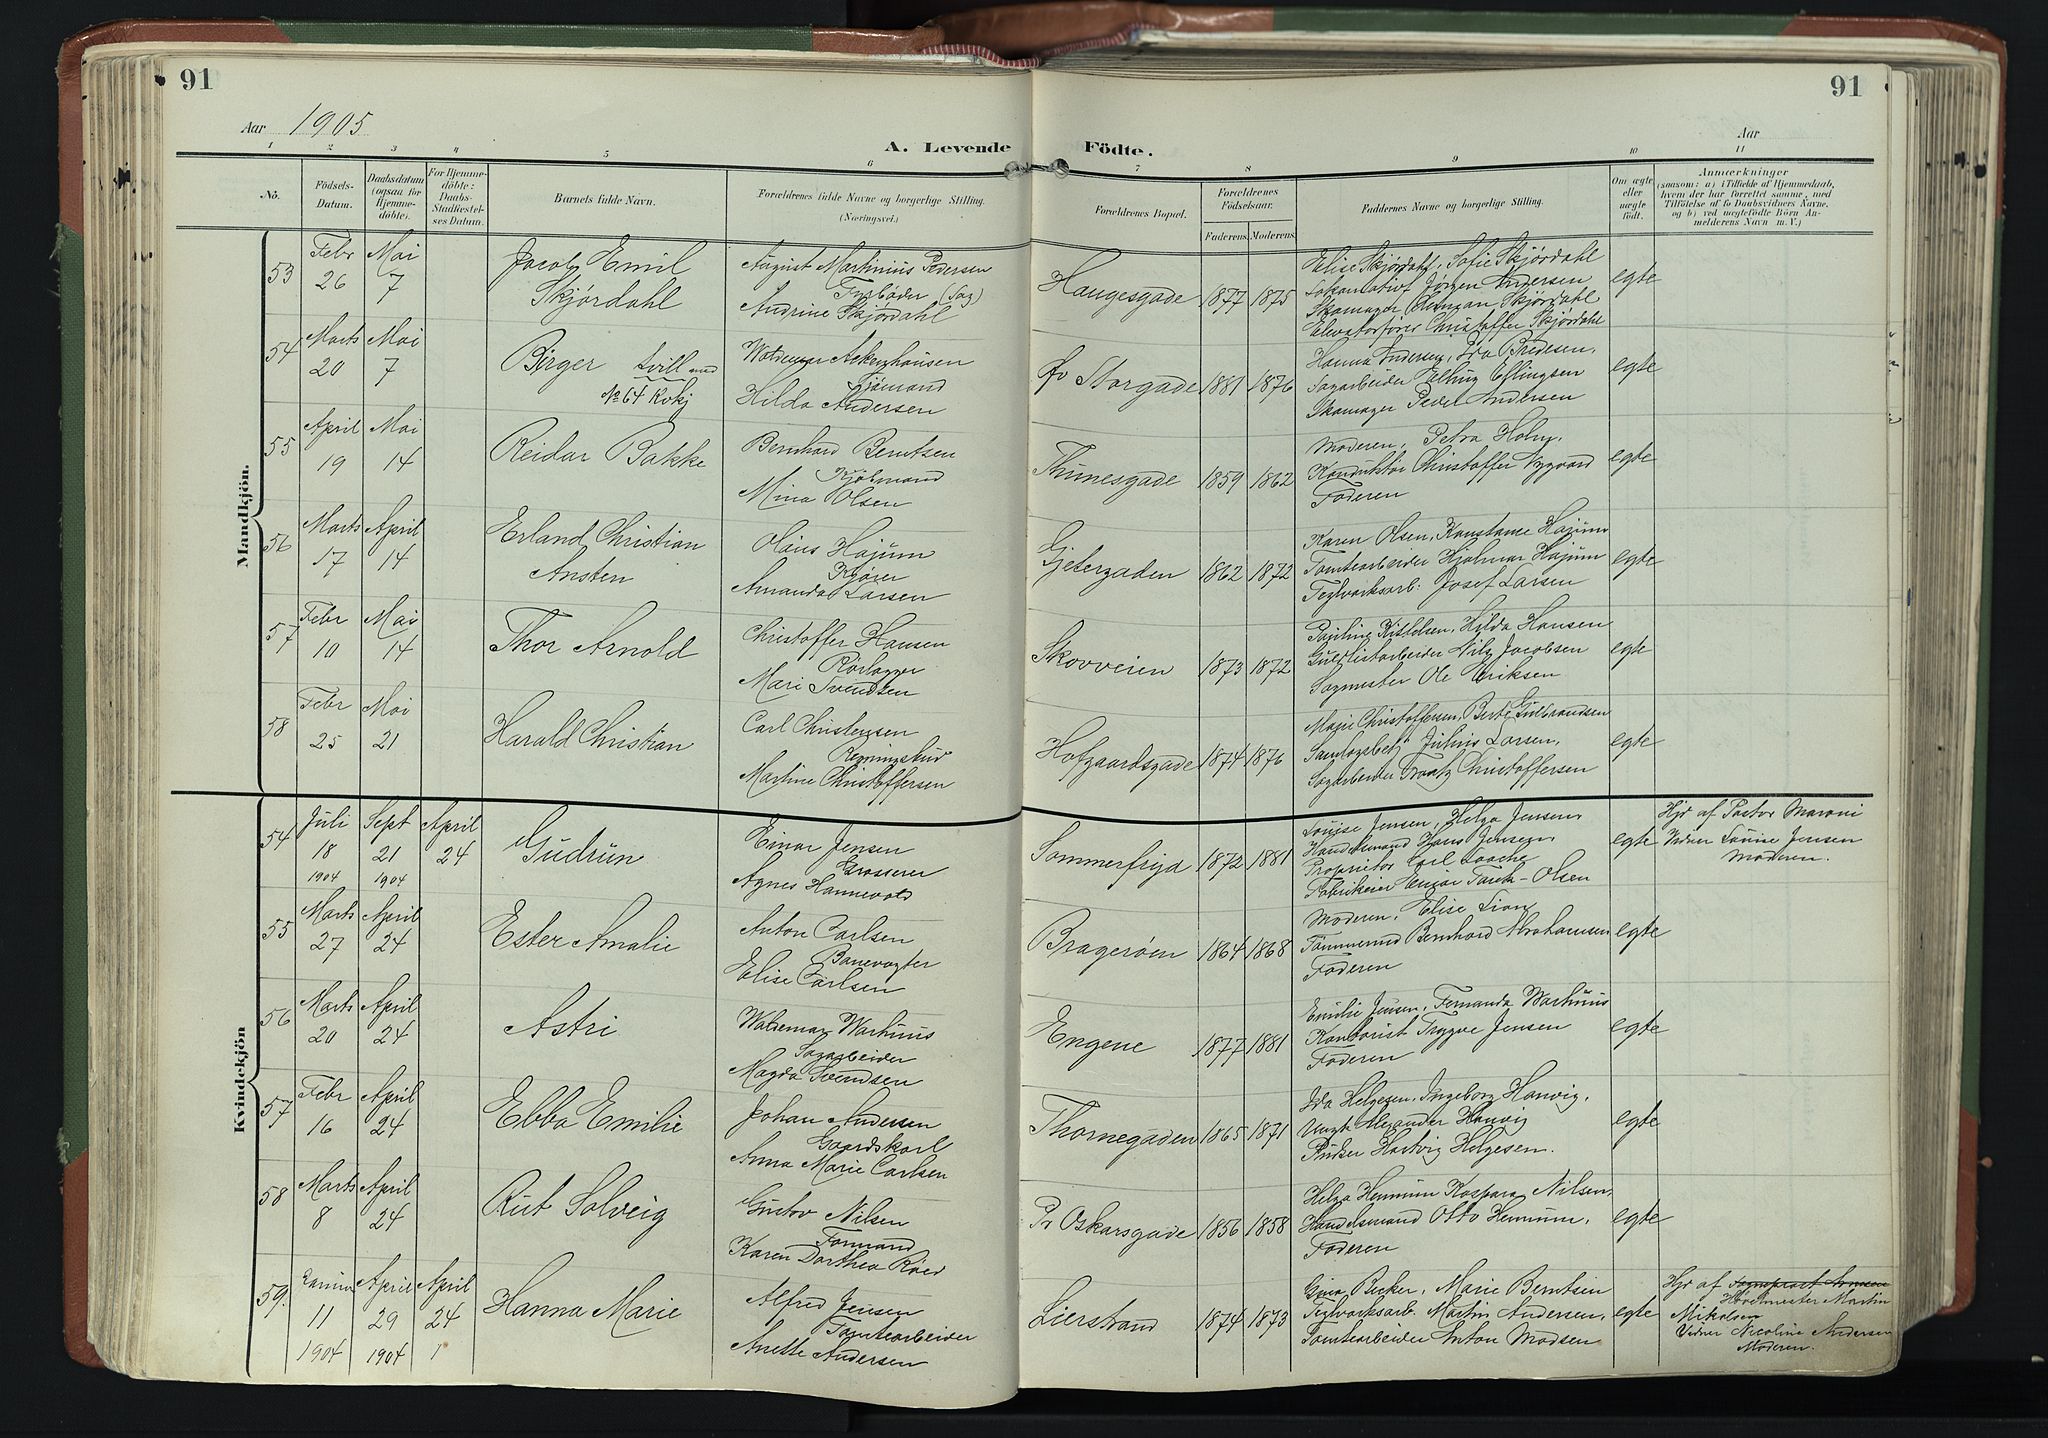 91
91
Aar 1905
Aar
A. Levende Födte.
1 2 3 4 5 6 7 8 9 10 11
No.
Födsels-Datum.
Daabsdatum (ogsaa for Hjemmedöbte).
For Hjemmedöbte: Daabs-Stadfæstelses Datum.
Barnets fulde Navn.
Forældrenes fulde Navne og borgerlige Stilling.
(Næringsvei.)
Forældrenes Bopæl.
Forældrenes Födselsaar.
Faderens. Moderens.
Faddernes Navne og borgerlige Stilling.
Om ægte eller uægte födt.
Anmærkninger
(saasom: a) i Tilfælde af Hjemmedaab, hvem der har forrettet samme, med Tilföielse af to Daabsvidners Navne, og b) ved uægtefödte Börn Anmelderens Navn m. V.)
Mandkjön.
53
Febr 26
Mai 7
Jacob Emil
Skjørdahl
August Martinius Pedersen
Fyrbøder (Sag)
Andrine Skjørdahl
Haugesgade
1877 1875
Elise Skjørdahl, Sofie Skjørdahl
Jørgen Andersen
Skomager Skjørdahl
Christoffer Skjørdahl
egte
54
Marts 20
Mai 7
Birger tvill med
No 64 Kvkj
Hilda Andersen
Øv Storgade
1881 1876
Hanna Andersen, Ida Bredesen,
Sagarbeider
Skomager Peder Andersen
egte
55
April 19
Mai 14
Reidar Bakke
Bernhard Berntsen
Kjøbmand
Mina Olsen
Thunesgade
1859 1862
Moderen, Petra Holm,
Konduktør Christoffer Nygaard
Faderen
egte
56
Marts 17
April 14
Erland Christian
Ansten
Olaus Hajum
Kjører
Amanda Larsen
Gjetergaden
1862 1872
Karen Olsen, Konstanse Hajum
Tomtearbeider Hjalmar Hajum
Teglverksarb: Josef Larsen
egte
57
Febr 10
Mai 14
Thor Arnold
Christoffer Hansen
Rørlægger
Mari Svendsen
Skovveien
1873 1872
Pauline Kittelsen, Hilda Hansen
Guldlistarbeider Nils Jacobsen
Sagmester Ole Eriksen
egte
58
Febr 25
Mai 21
Harald Christian
Carl Christensen
Martine Christoffersen
Hofgaardsgade
1874 1876
Marie Christoffersen, Berte Gulbrandsen
Julius Larsen,
Sagarbeider Frantz Christoffersen
egte
Kvindekjön
54
Juli 18 1904
Sept 21 1904
April 24
Gudrun
Einar Jensen
Grosserer
Agnes Hannevold
Sommerfryd
1872 1881
Louise Jensen, Helga Jensen,
Handelsmand Hans Jensen,
Proprietær Carl Laache
Fabrikeier Einar Tandb-Olsen
egte
Hjd af Pastor Maroni
Vidner Louise Jensen
Moderen.
55
Marts 27
April 24
Ester Amalie
Anton Carlsen
Banevogter
Elise Carlsen
Bragerøen
1864 1868
Moderen, Elise Lian,
Tømmermd Bernhard Abrahamsen
Faderen
egte
56
Marts 20
April 24
Astri
Waldemar Warhuus
Sagarbeider
Magda Svendsen
Engene
1877 1881
Emilie Jensen, Fernanda Warhuus
Kontorist Trygve Jensen
Faderen
egte
57
Febr 16
April 24
Ebba Emilie
Johan Andersen
Gaardskarl
Anna Marie Carlsen
Thornegaden
1865 1871
Ida Helgesen, Ingeborg Hanvig,
Alexander Hanvig
Pudser Hartvig Helgesen.
egte
58
Marts 8
April 24
Rut Solveig
Gustav Nilsen
Formand
Karen Dorthea Röed
Pr Oskarsgade
1856 1858
Helga Hennum Kaspara Nilsen,
Handelsmand Otto Hennum,
Faderen
egte
59.
11 1904
April 29 1904
April 24
Hanna Marie
Alfred Jensen
Tomtearbeider
Anette Andersen
Lierstrand
1874 1873
Gina Becker, Marie Berntsen
Teglverksarb. Martin Andersen,
Tomtearbeider Anton Madsen
egte
Hjd af
Martin
Mikalsen
Vidner Nicoline Andersen
Moderen.